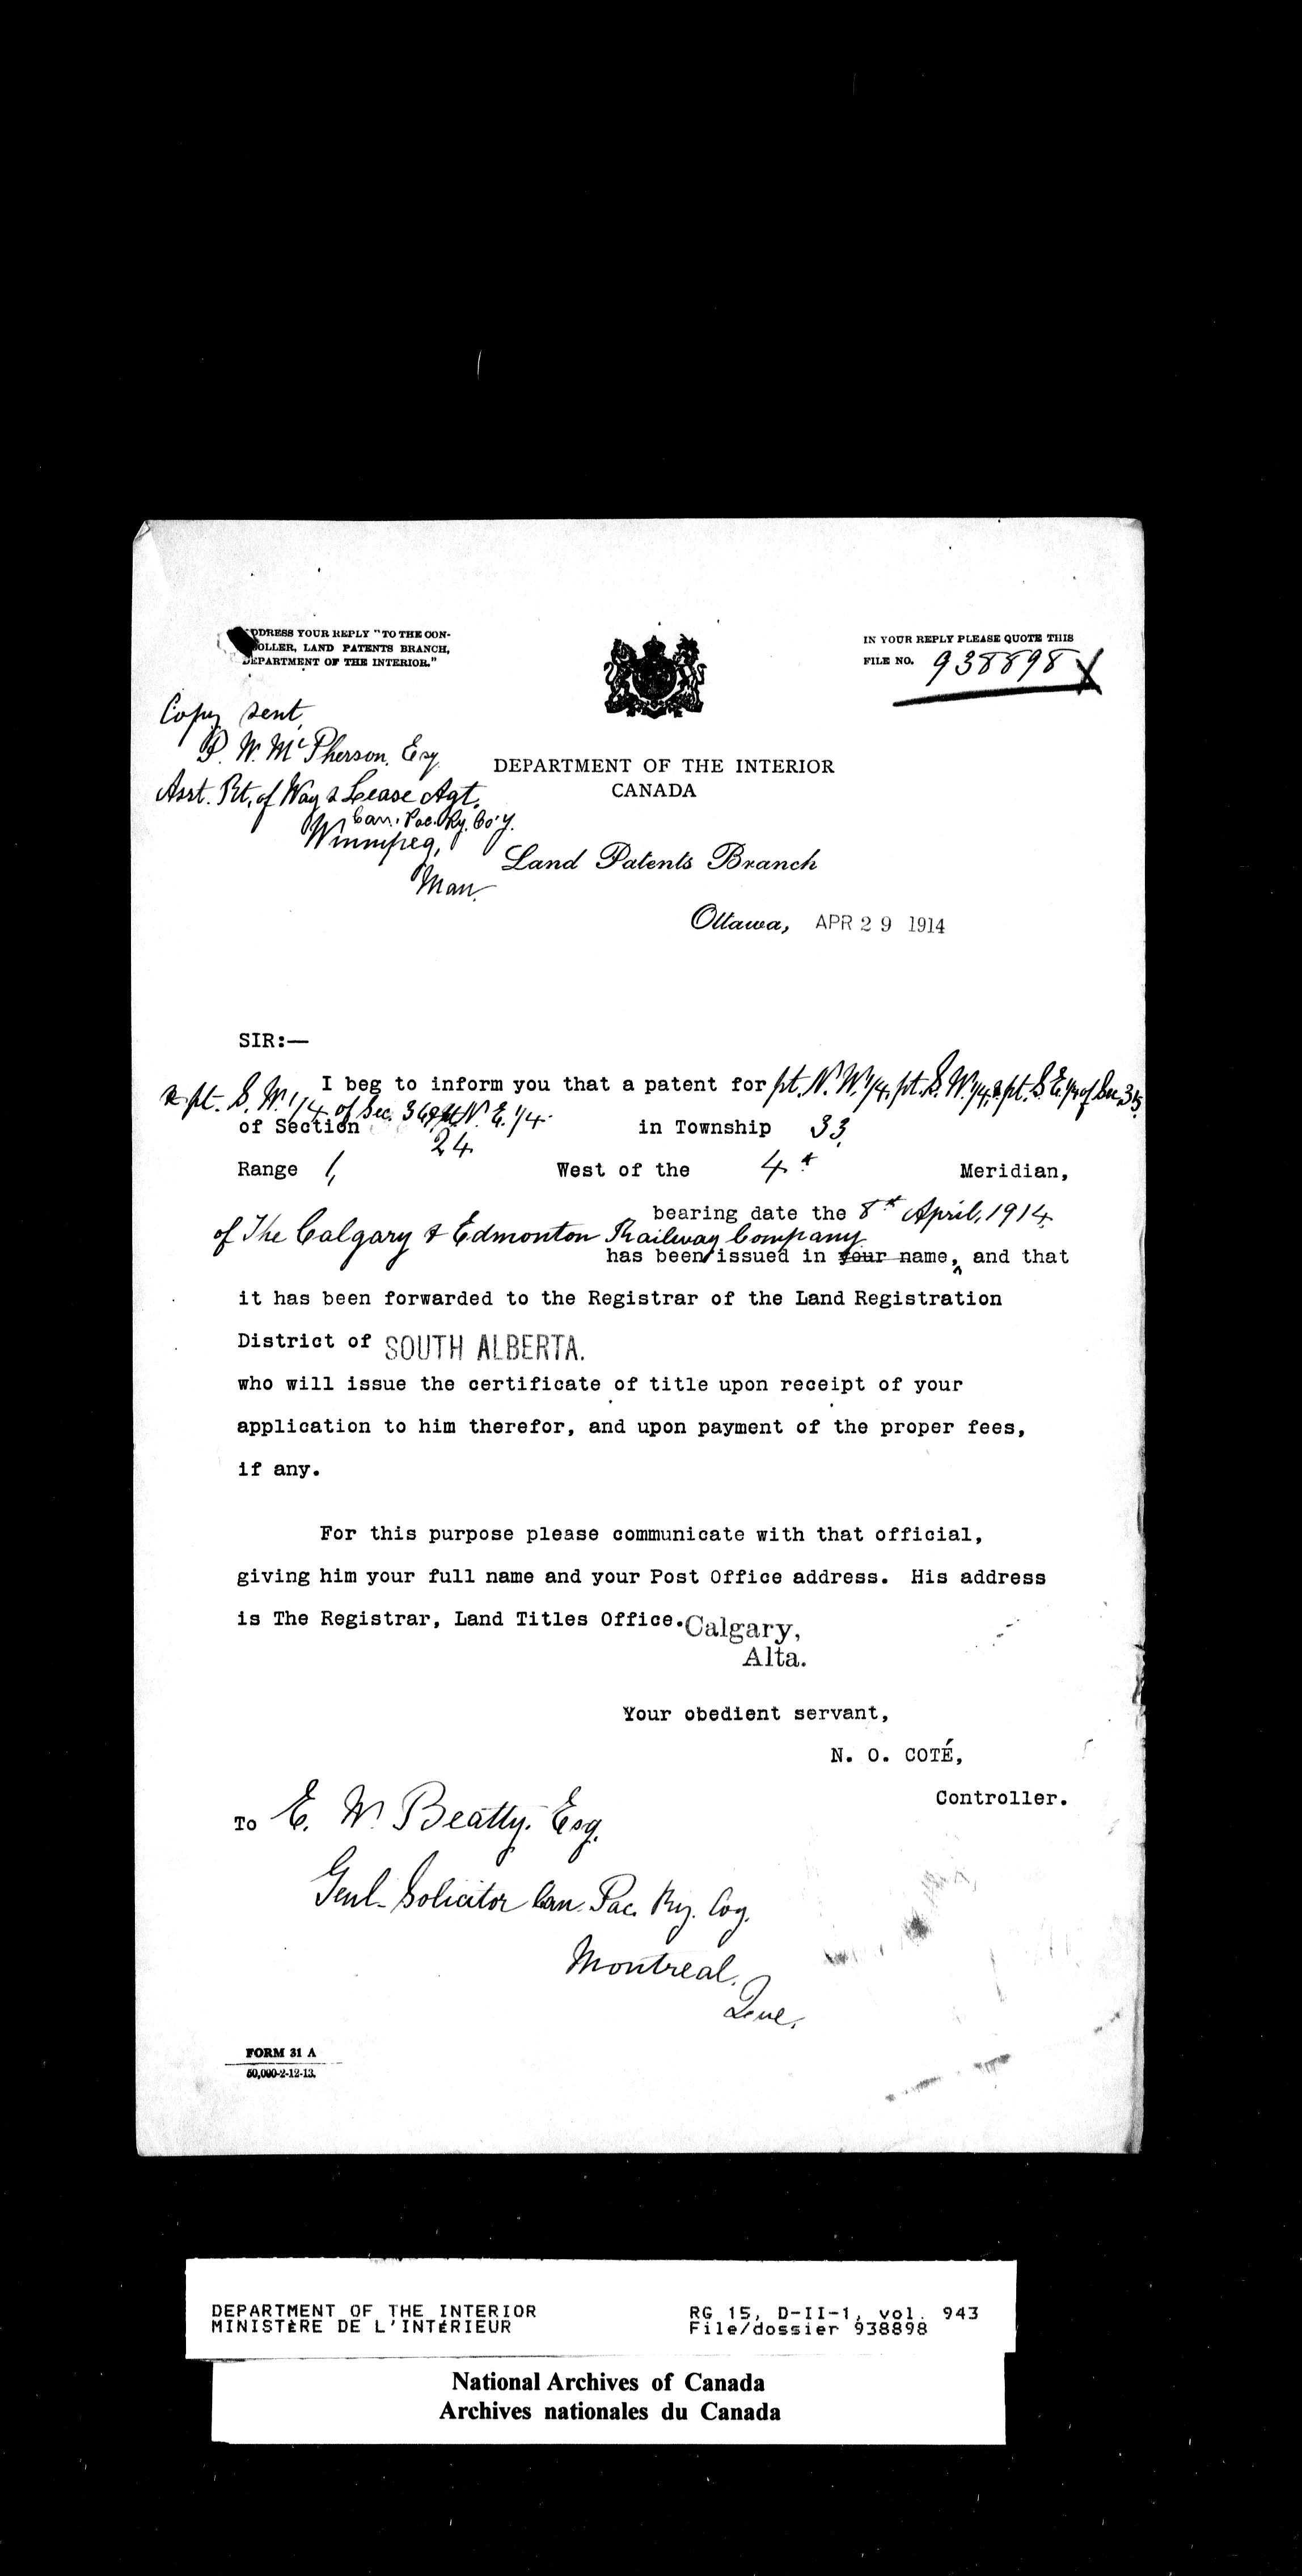 DDRESS YOUR REPLY "TO THE CON-
OLLER, LAND PATENTS BRANCH,
DEPARTMENT OF THE INTERIOR."
IN YOUR REPLY PLEASE QUOTE THIS
FILE NO. 938898 X
Copy sent,
P. W. McPherson, Esq.
Asst. Rt. of Way & Lease Agt.
Can. Pac. Ry. Co'y.
Winnipeg,
Man.
DEPARTMENT OF THE INTERIOR
CANADA
Land Patents Branch
Ottawa, APR 29 1914
SIR:—
I beg to inform you that a patent for pt. N.W.1/4, pt. S.W.1/4, & pt. S.E.1/4 of Sec. 35
& pt. S.W. 1/4 of Sec. 36, N.E. 1/4
of Section 24 in Township 33,
Range 1, West of the 4th Meridian,
bearing date the 8th April, 1914
of The Calgary & Edmonton Railway Company
has been issued in your name, and that
it has been forwarded to the Registrar of the Land Registration
District of SOUTH ALBERTA.
who will issue the certificate of title upon receipt of your
application to him therefor, and upon payment of the proper fees,
if any.
For this purpose please communicate with that official,
giving him your full name and your Post Office address. His address
is The Registrar, Land Titles Office. Calgary,
Alta.
Your obedient servant,
N. O. COTÉ,
Controller.
To E. W. Beatty, Esq.
Genl. Solicitor Can. Pac. Ry. Coy.
Montreal,
Que.
FORM 31 A
50,000-2-12-13.
DEPARTMENT OF THE INTERIOR
MINISTÈRE DE L'INTÉRIEUR
RG 15, D-II-1, vol. 943
File/dossier 938898
National Archives of Canada
Archives nationales du Canada